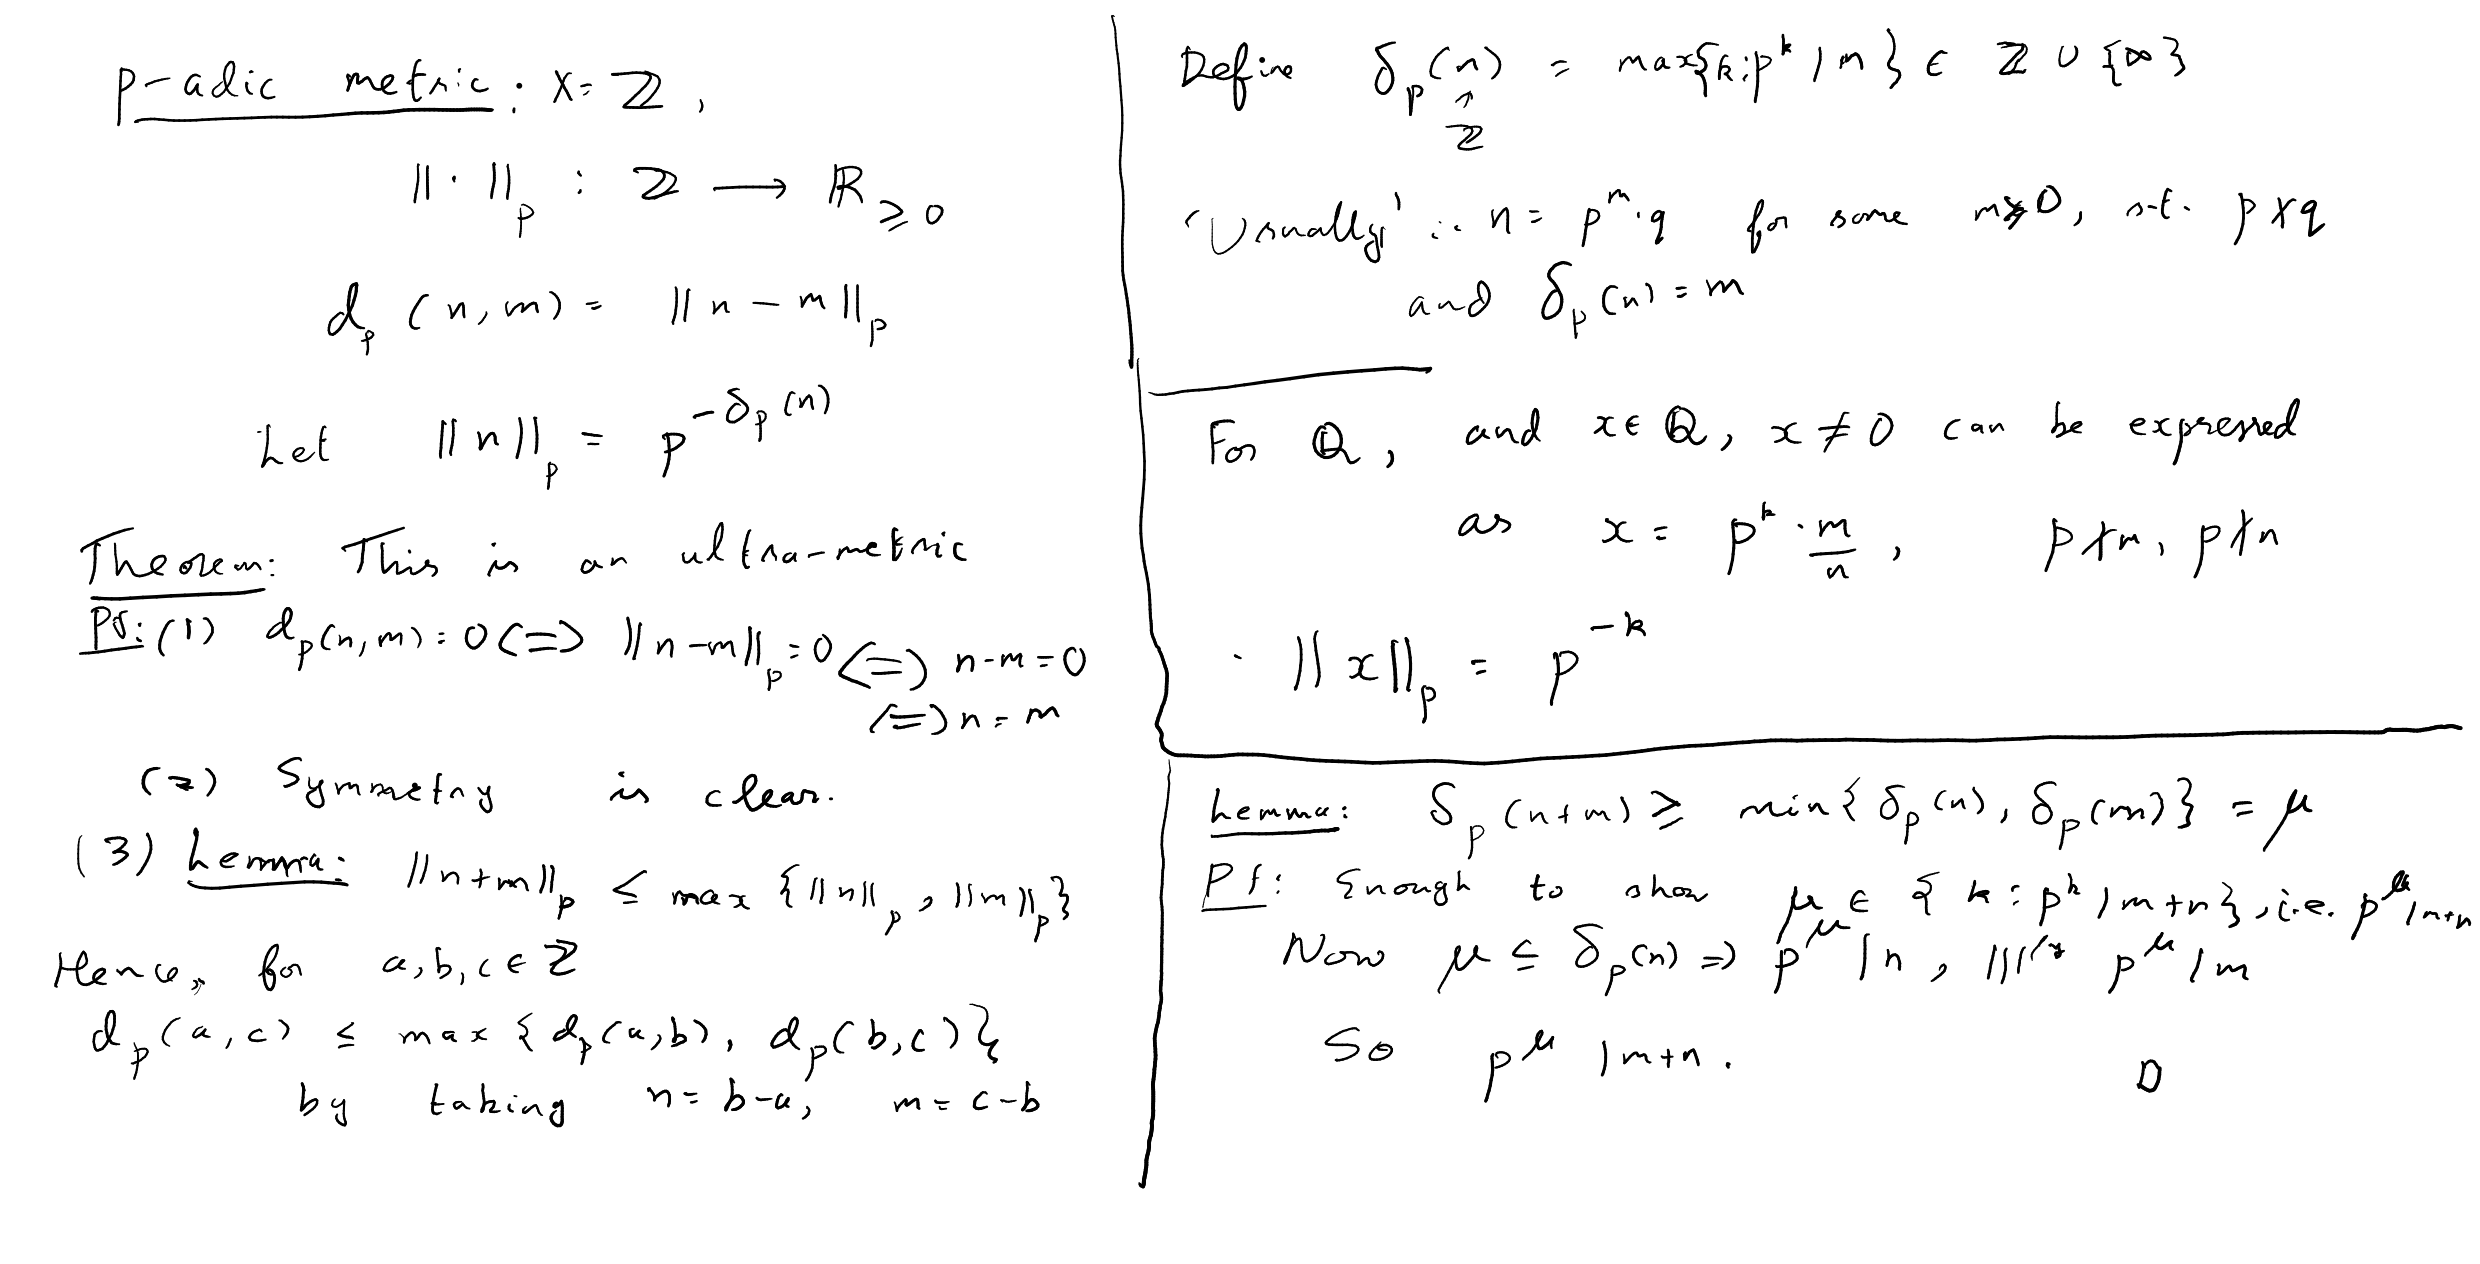 p-adic metric: X = ℤ,
‖·‖_p : ℤ ⟶ ℝ_≥0
d_p (n, m) = ‖n - m‖_p
Let ‖n‖_p = p^{-δ_p(n)}
Theorem: This is an ultra-metric
Pf: (1) d_p(n,m) = 0 <=> ‖n-m‖_p = 0 <=> n-m = 0
<=> n = m
(2) Symmetry is clear.
(3) Lemma: ‖n+m‖_p ≤ max {‖n‖_p, ‖m‖_p}
Hence, for a, b, c ∈ ℤ
d_p(a, c) ≤ max {d_p(a,b), d_p(b,c)}
by taking n = b-a, m = c-b
Define δ_p(n) = max{k : p^k | n} ∈ ℤ ∪ {∞}
↑
ℤ
'Usually' :. n = p^m · q for some m ≥ 0, s.t. p ∤ q
and δ_p(n) = m
For ℚ, and x ∈ ℚ, x ≠ 0 can be expressed
as x = p^k · m/n, p ∤ m, p ∤ n
· ‖x‖_p = p^{-k}
Lemma: δ_p(n+m) ≥ min{δ_p(n), δ_p(m)} = μ
Pf: Enough to show μ ∈ {k : p^k | m+n}, i.e. p^μ | m+n
Now μ ≤ δ_p(n) => p^μ | n, |||ly p^μ | m
So p^μ | m+n. □